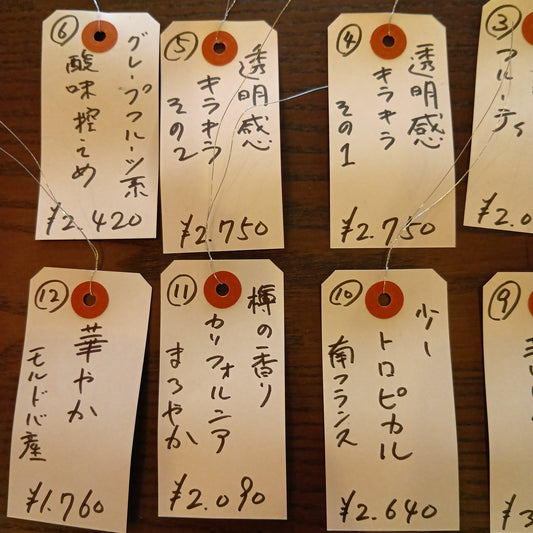 ⑥
グレープフルーツ系
酸味控えめ
¥2,420
⑤
透明感
キラキラ
その2
¥2.750
④
透明感
キラキラ
その1
¥2.750
③
フルーティ
¥2.0
⑫
華やか
モルドバ産
¥1.760
⑪
樽の香り
カリフォルニア
まろやか
¥2.090
⑩
少し
トロピカル
南フランス
¥2.640
⑨
¥3